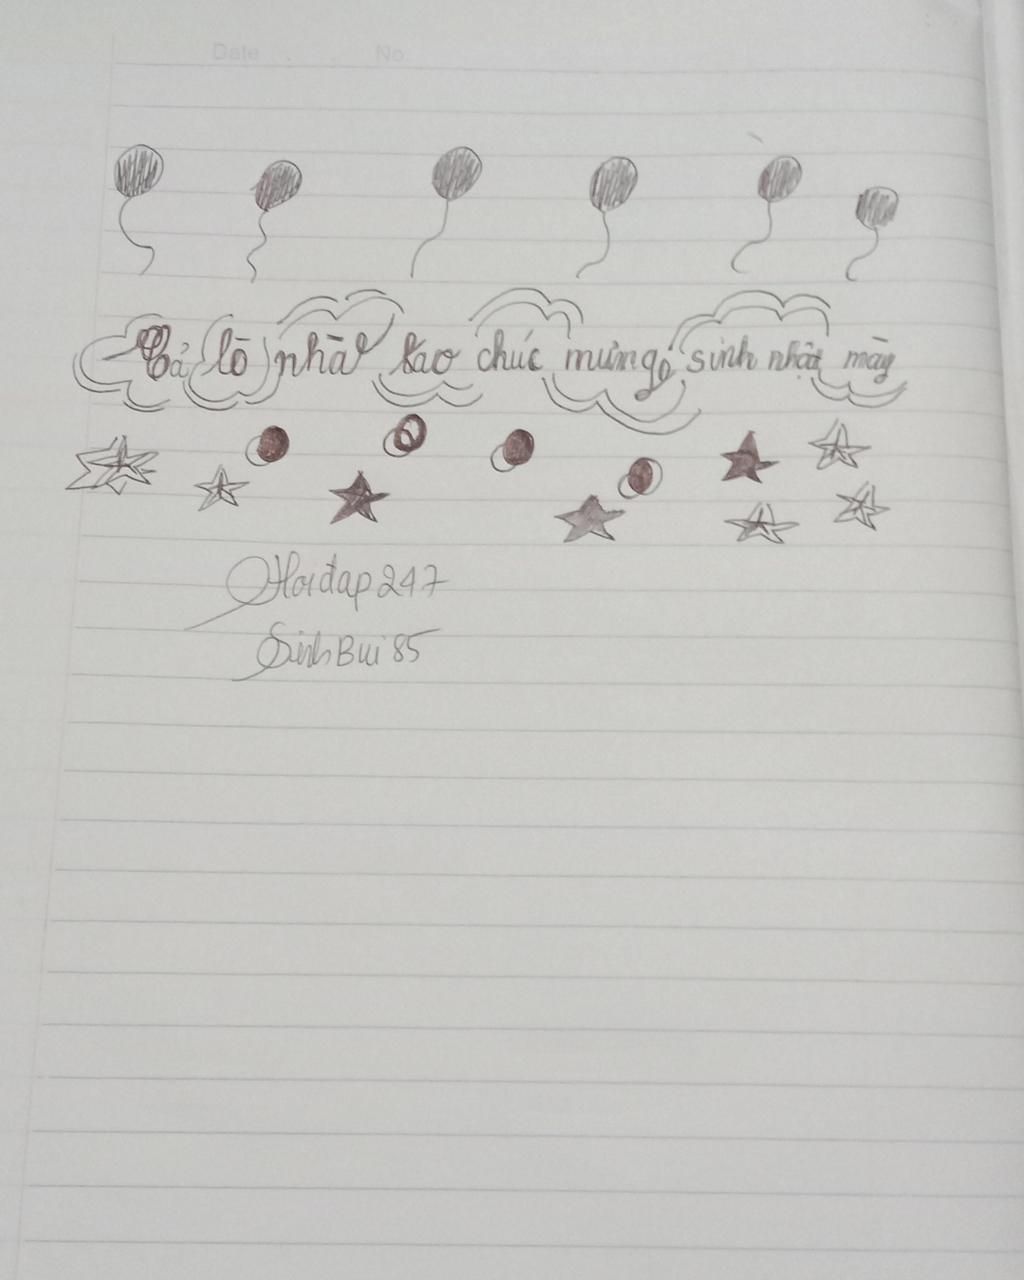 Date No.
Cả lò nhà tao chúc mừng sinh nhật mày
Hoidap247
SinhBui85